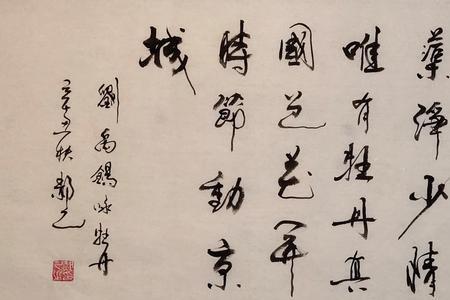 蕖淨少情
唯有牡丹真
國色花開
時節動京
城
劉禹錫詠牡丹
辛丑秋